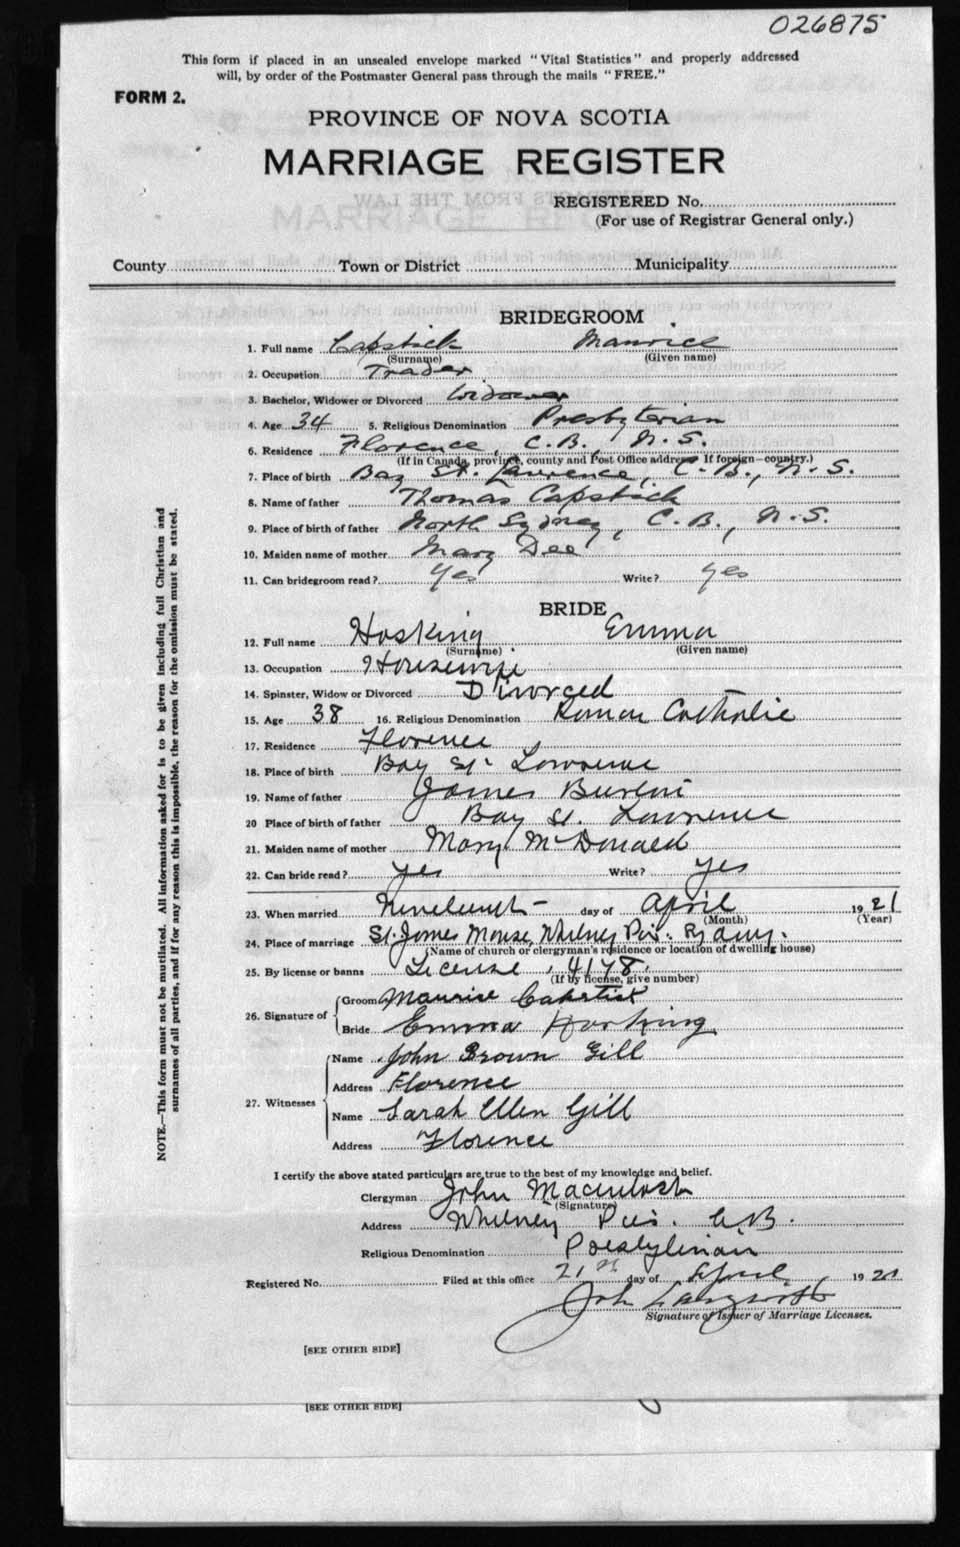 026875
This form if placed in an unsealed envelope marked "Vital Statistics" and properly addressed
will, by order of the Postmaster General pass through the mails "FREE."
FORM 2.
PROVINCE OF NOVA SCOTIA
MARRIAGE REGISTER
REGISTERED No.
(For use of Registrar General only.)
County Town or District Municipality
BRIDEGROOM
1. Full name Capstick Maurice
(Surname) (Given name)
2. Occupation Trader
3. Bachelor, Widower or Divorced Widower
4. Age 34 5. Religious Denomination Presbyterian
6. Residence Florence, C.B., N.S.
(If in Canada, province, county and Post Office address. If foreign—country.)
7. Place of birth Bay St. Lawrence, C.B., N.S.
8. Name of father Thomas Capstick
9. Place of birth of father North Sydney, C.B., N.S.
10. Maiden name of mother Mary Dee
11. Can bridegroom read? Yes Write? Yes
BRIDE
12. Full name Hosking Emma
(Surname) (Given name)
13. Occupation Housewife
14. Spinster, Widow or Divorced Divorced
15. Age 38 16. Religious Denomination Roman Catholic
17. Residence Florence
18. Place of birth Bay St. Lawrence
19. Name of father James
20 Place of birth of father Bay St. Lawrence
21. Maiden name of mother Mary McDonald
22. Can bride read? yes Write? yes
23. When married Nineteenth day of April 1921
(Month) (Year)
24. Place of marriage St. James Manse, Whitney Pier. Sydney.
(Name of church or clergyman's residence or location of dwelling house)
25. By license or banns License, 4178.
(If by license, give number)
26. Signature of
Groom Maurice
Bride Emma Hosking
27. Witnesses
Name John Brown Gill
Address Florence
Name Sarah Ellen Gill
Address Florence
I certify the above stated particulars are true to the best of my knowledge and belief.
Clergyman John Macintosh
(Signature)
Address Whitney Pier. C.B.
Religious Denomination Presbyterian
Registered No. Filed at this office 21st day of April 1921
John
Signature of Issuer of Marriage Licenses.
[SEE OTHER SIDE]
[SEE OTHER SIDE]
NOTE.—This form must not be mutilated. All information asked for is to be given including full Christian and
surnames of all parties, and if for any reason this is impossible, the reason for the omission must be stated.